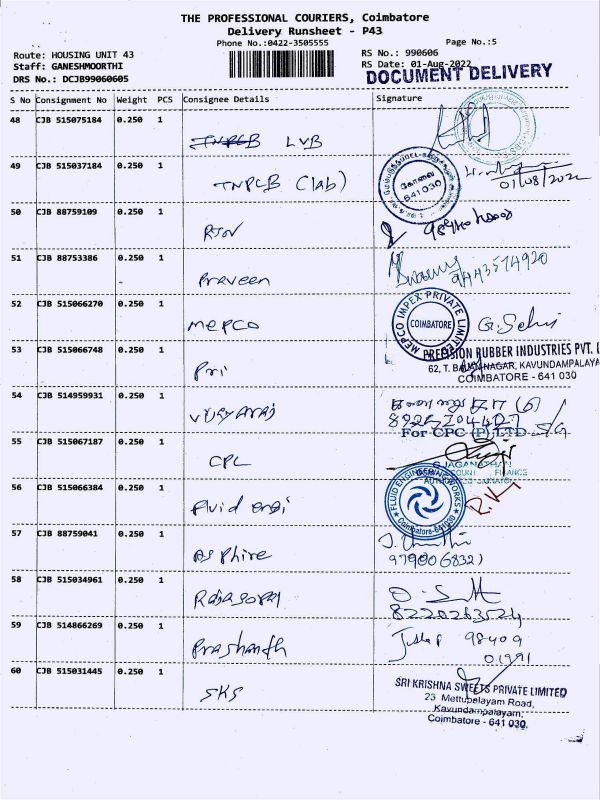 THE PROFESSIONAL COURIERS, Coimbatore
Delivery Runsheet - P43
Phone No.:0422-3505555
Page No.:5
Route: HOUSING UNIT 43
RS No.: 990606
Staff: GANESHMOORTHI
RS Date: 01-Aug-2022
DRS No.: DCJB99060605
DOCUMENT DELIVERY
S No Consignment No Weight PCS Consignee Details Signature
48 CJB 515075184 0.250 1
TNPCB LVB
49 CJB 515037184 0.250 1
TNPCB (lab)
கோவை
641030
01/08/2022
50 CJB 88759109 0.250 1
51 CJB 88753386 0.250 1
Praveen
9443574920
52 CJB 515066270 0.250 1
MEPCO
MEPCO IMPEX PRIVATE LIMITED
COIMBATORE
53 CJB 515066748 0.250 1
Pri
PRECISION RUBBER INDUSTRIES PVT.
62, T. NAGAR, KAVUNDAMPALAYA
COIMBATORE - 641 030
54 CJB 514959931 0.250 1
For CPC (P) LTD
55 CJB 515067187 0.250 1
CPL
S.JAGANATHAN
56 CJB 515066384 0.250 1
Fluid engi
FLUID ENGINEERING WORKS
Coimbatore-641030
57 CJB 88759041 0.250 1
Asphire
9790068321
58 CJB 515034961 0.250 1
Rajagopal
8220263524
59 CJB 514866269 0.250 1
Prashanth
98409
01991
60 CJB 515031445 0.250 1
SKS
SRI KRISHNA SWEETS PRIVATE LIMITED
23 Mettupalayam Road,
Kavundampalayam,
Coimbatore - 641 030.